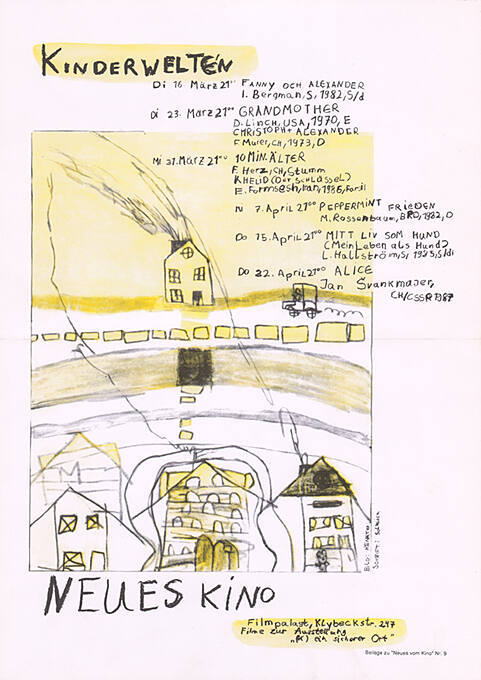 KINDERWELTEN
Di 16 März 21⁰⁰ FANNY OCH ALEXANDER
I. Bergman, S, 1982, S/d
Di 23. März 21⁰⁰ GRANDMOTHER
D. Linch, USA, 1970, E
CHRISTOPH + ALEXANDER
F. Murer, CH, 1973, D
Mi 31. März 21⁰⁰ 10 MIN. ÄLTER
F. Herz, CH, Stumm
KHELID (Der SCHLÜSSEL)
Iran, 1986,
7. April 21⁰⁰ PEPPERMINT FRIEDEN
M. Rossenbaum, BRD, 1982, D
Do 15. April 21⁰⁰ MITT LIV SOM HUND
(Mein Leben als Hund)
L. Hallström, S,
Do 22. April 21⁰⁰ ALICE
Jan Švankmajer,
CH/CSSR 1987
NEUES KINO
Filmpalast, Klybeckstr. 247
Filme zur Ausstellung
ein sicherer Ort"
Beilage zu "Neues vom Kino" Nr. 9